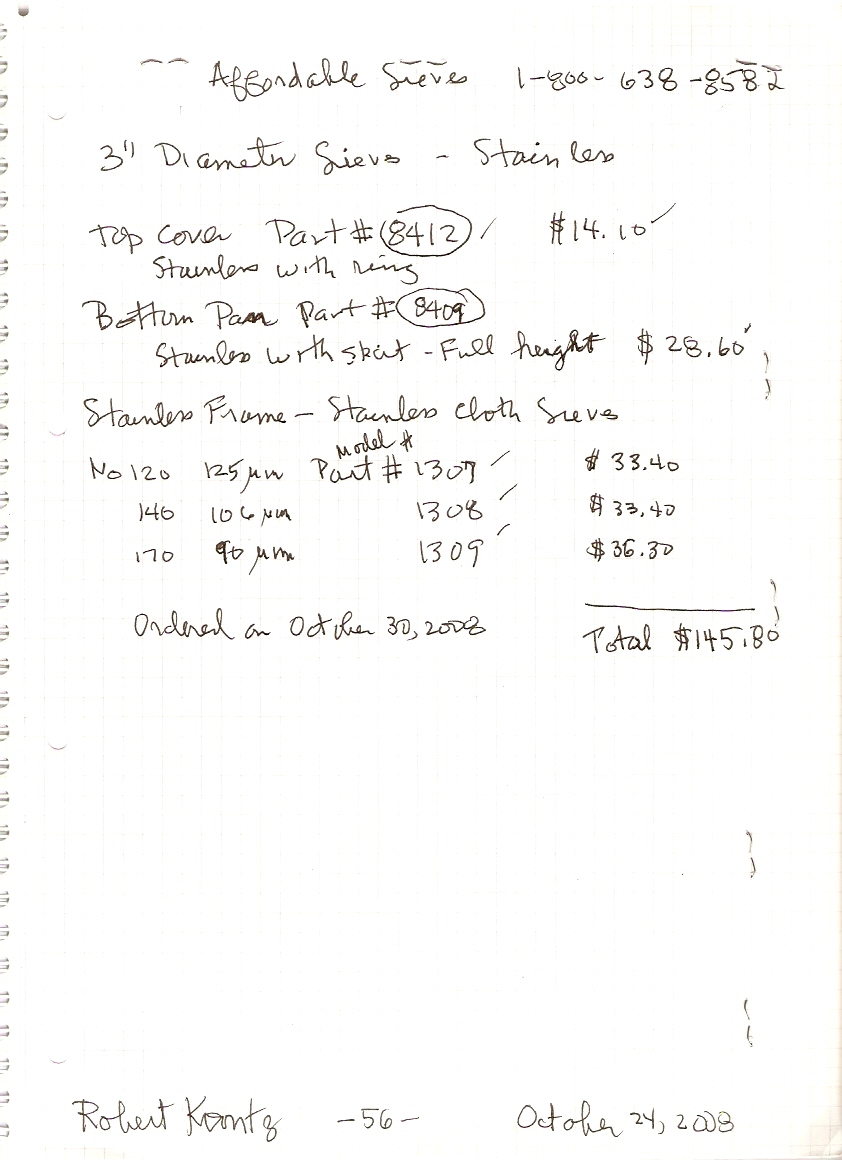 Affordable Sieves 1-800-638-8582
3" Diameter Sieve - Stainless
Top Cover Part # 8412 ✓ $14.10 ✓
Stainless with ring
Bottom Pan Part # 8409
Stainless with skirt - Full height $28.60 ✓
Stainless Frame - Stainless Cloth Sieve
Model #
No 120 125 μm Part # 1307 ✓ $33.40
140 106 μm 1308 ✓ $33.40
170 90 μm 1309 ✓ $36.30
Ordered on October 30, 2008 Total $145.80
Robert Koontz -56- October 24, 2008